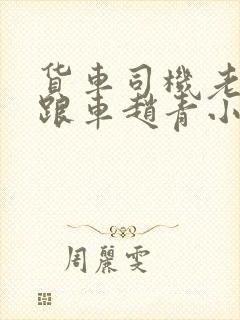 货車司機老
跟車趙青小
周麗雯